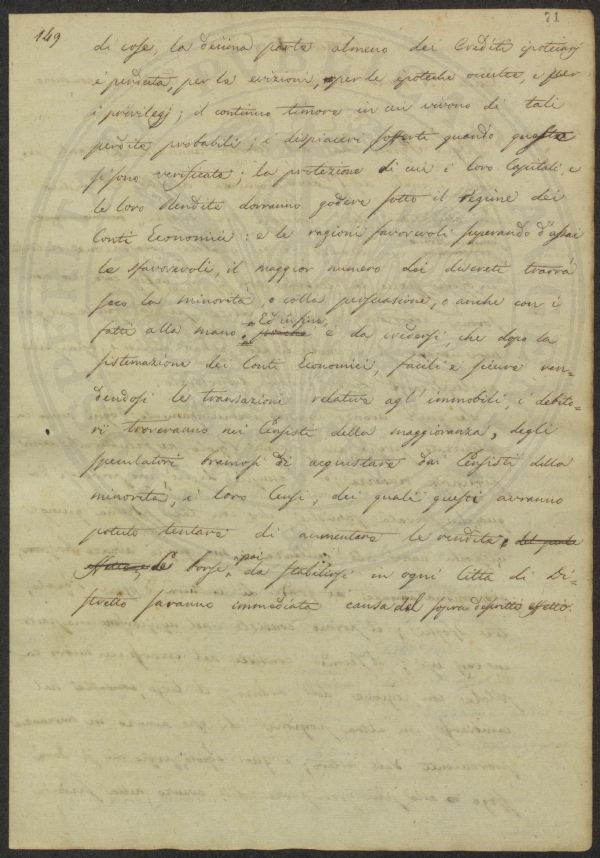 149
71
di cose, la decima parte almeno dei Crediti ipotecarj
è perduta, per le evizioni, per le ipoteche occulte, e per
i privilegj; il continuo timore in cui vivono di tali
perdite probabili; i dispiaceri sofferti quando queste
si sono verificate; la protezione di cui i loro Capitali, e
le loro Rendite dovranno godere sotto il regime dei
Conti Economici: e le ragioni favorevoli superando d'assai
le sfavorevoli, il maggior numero dei discreti trarrà
seco la minorità, o colla persuasione, o anche con i
fatti alla mano. Ed infine,
è da credersi, che dopo la
sistemazione dei Conti Economici, facili e sicure ren=
dendosi le transazioni relative agl'immobili, i debito=
ri troveranno nei Censisti della maggioranza, degli
speculatori bramosi di acquistare dai Censisti della
minorità, i loro Censi, dei quali questi avranno
potuto tentare di aumentare le vendite.
Le borse, poi da stabilirsi in ogni Città di Di=
stretto saranno immediata causa del sopra descritto effetto.